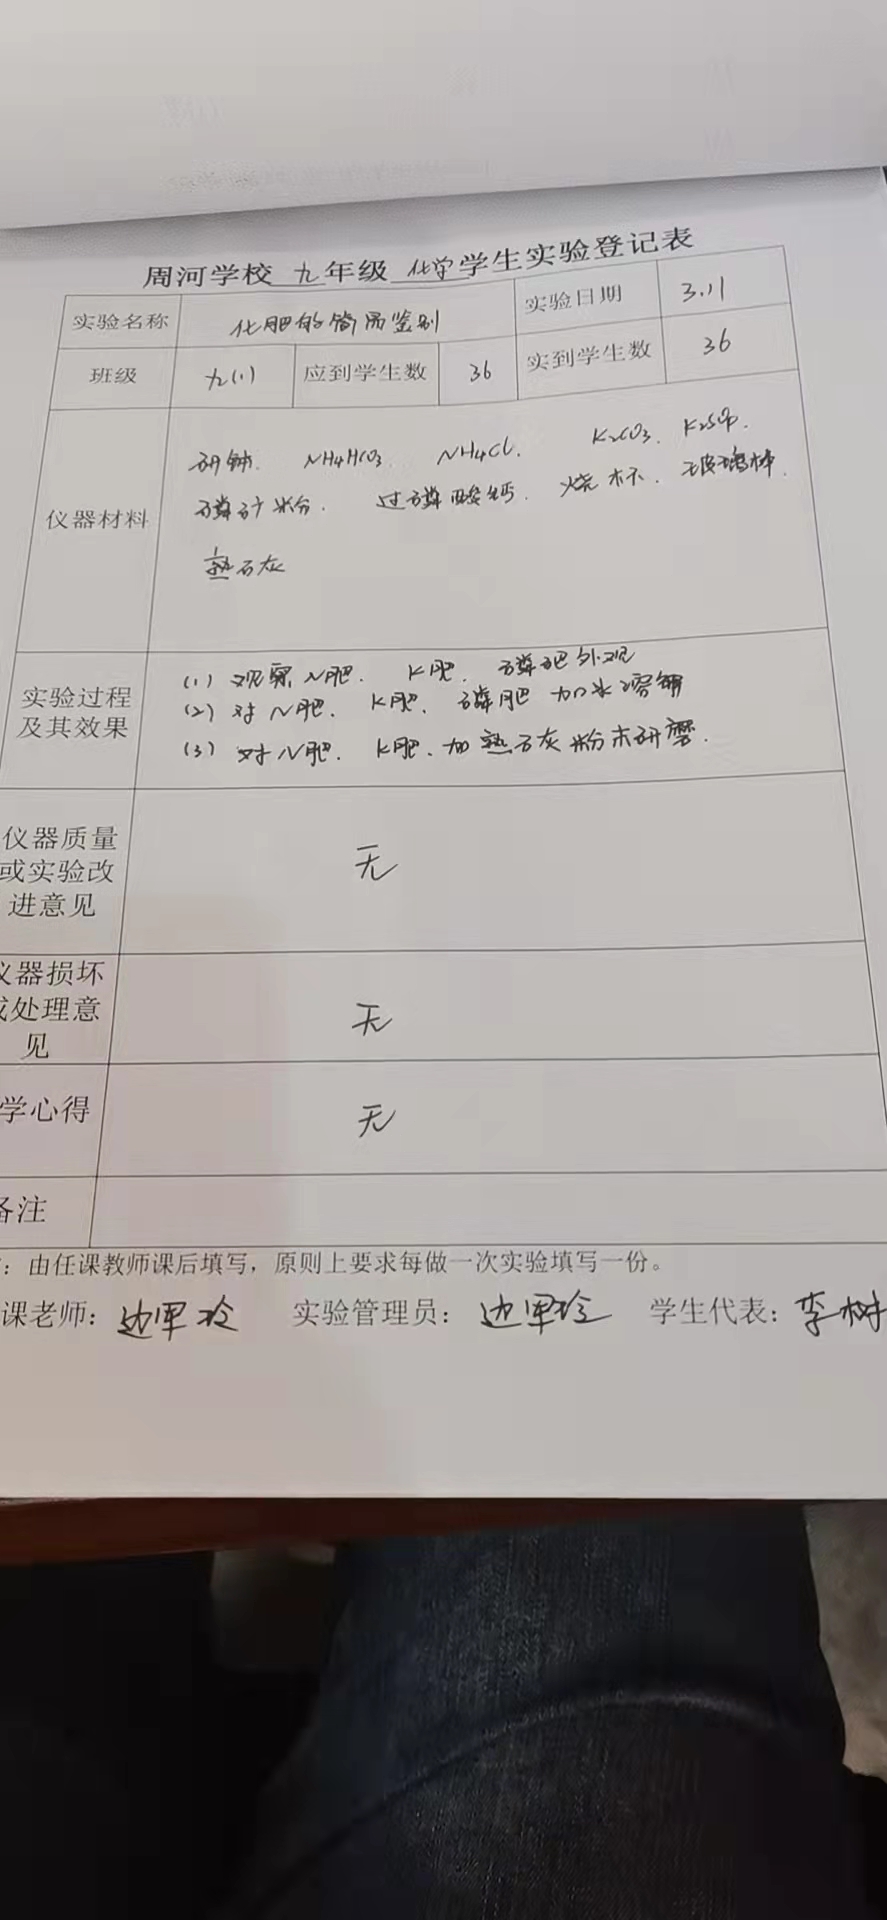 周河学校 九年级 化学学生实验登记表
实验名称 化肥的简易鉴别 实验日期 3.11
班级 九(1) 应到学生数 36 实到学生数 36
仪器材料
研钵. NH4HCO3 NH4Cl. K2CO3. K2SO4.
磷矿粉. 过磷酸钙. 烧杯. 玻璃棒.
熟石灰
实验过程
及其效果
(1) 观察N肥. K肥. 磷肥外观
(2) 对N肥. K肥. 磷肥加水溶解
(3) 对N肥. K肥. 加熟石灰粉末研磨.
仪器质量
或实验改
进意见
无
仪器损坏
或处理意
见
无
学心得
无
备注
: 由任课教师课后填写，原则上要求每做一次实验填写一份。
课老师: 实验管理员: 学生代表: 李树